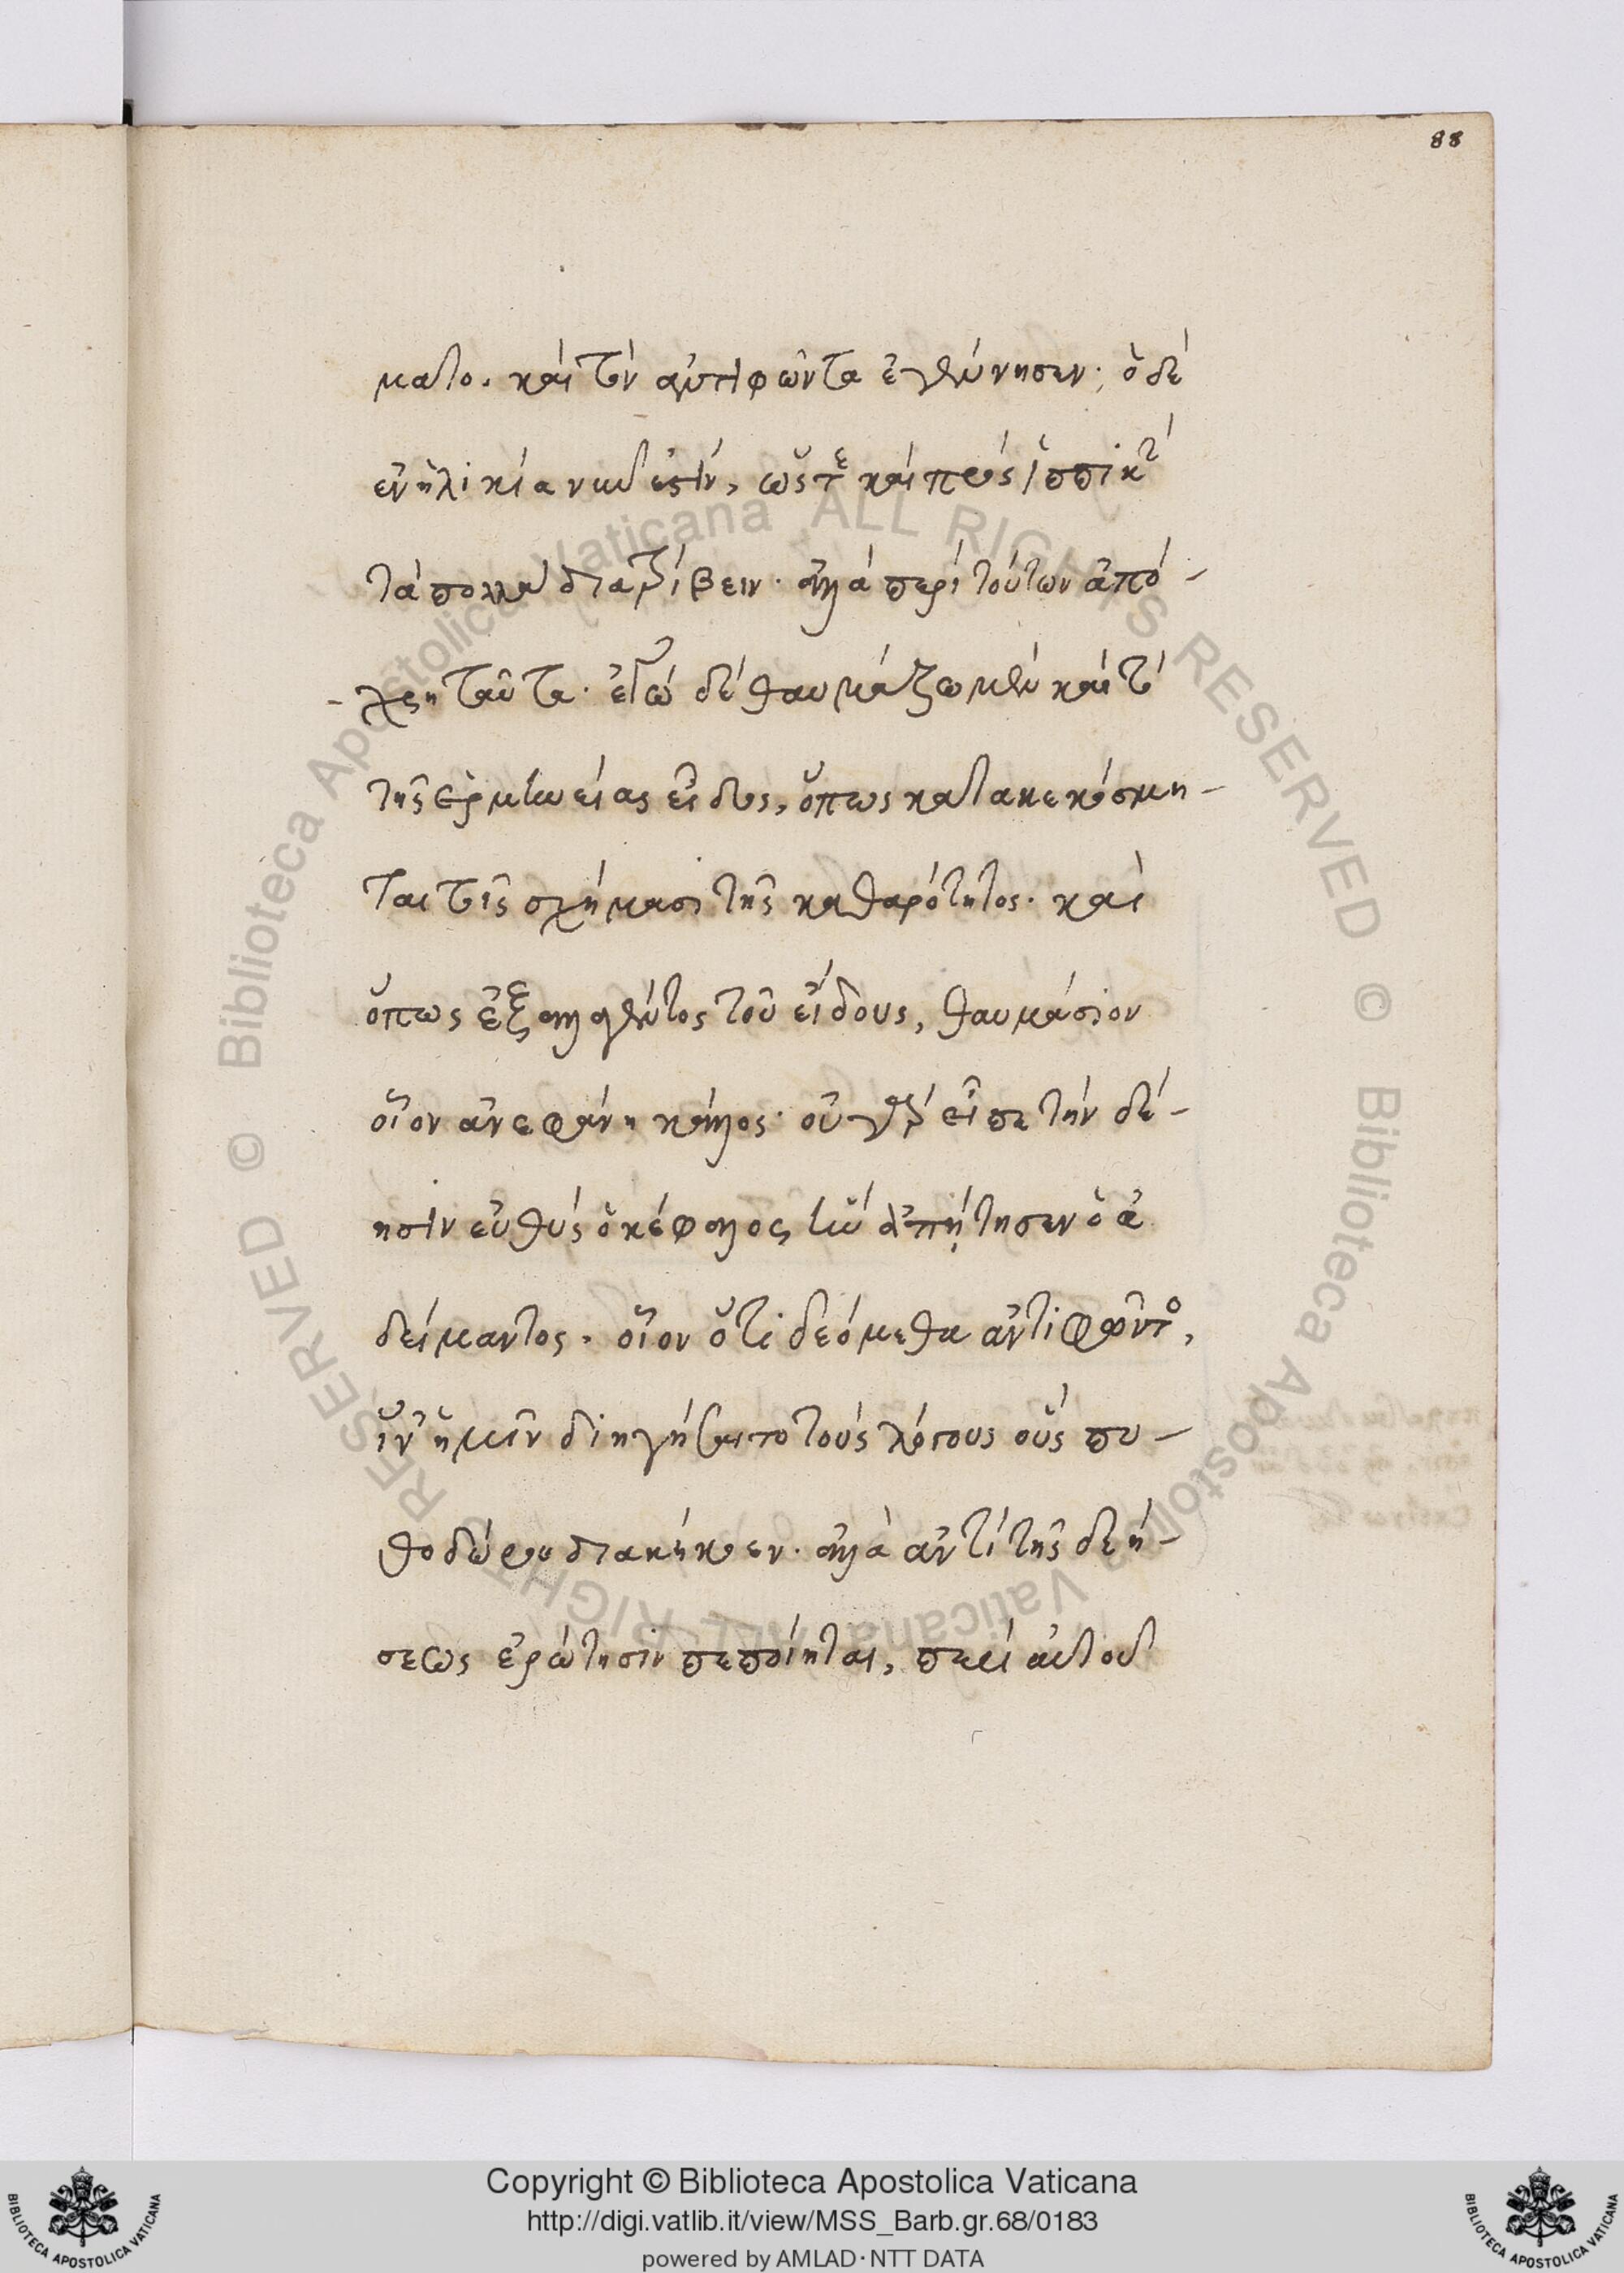 88
ματο. καὶ τὸν ἀντιφῶντα ἐγέννησεν· ὁ δὲ
ἐν ἡλικία νῦν ἐστὶν, ὥστε καὶ πρὸς ἱππικῆ
τὰ πολλὰ διατρίβειν· ἀλλὰ περὶ τούτων ἀπό-
-χρη ταῦτα· ἐγὼ δὲ θαυμάζω μὲν καὶ τὸ
τῆς ἑρμηνείας εἶδος, ὅπως κατακεκόσμη-
ται τοῖς σχήμασι τῆς καθαρότητος· καὶ
ὅπως ἐξαλλαγέντος τοῦ εἴδους, θαυμάσιον
οἷον ἀνεφάνη κάλλος· οὐ γὰρ εἶπε τὴν δέ-
ησιν εὐθὺς ὁ κέφαλος, ἣν ἀπῄτησεν ὁ ἀ
δείμαντος. οἷον ὅτι δεόμεθα ἀντιφῶντος,
ἵν' ἡμῖν διηγήσαιτο τοὺς λόγους οὓς πυ-
θοδώρου διακήκοεν· ἀλλὰ ἀντὶ τῆς δεή-
σεως ἐρώτησιν πεποίηται, περὶ αὐτοῦ
Copyright © Biblioteca Apostolica Vaticana
http://digi.vatlib.it/view/MSS_Barb.gr.68/0183
powered by AMLAD·NTT DATA
BIBLIOTECA APOSTOLICA VATICANA
BIBLIOTECA APOSTOLICA VATICANA
© Biblioteca Apostolica Vaticana ALL RIGHTS RESERVED © Biblioteca Apostolica Vaticana ALL RIGHTS RESERVED